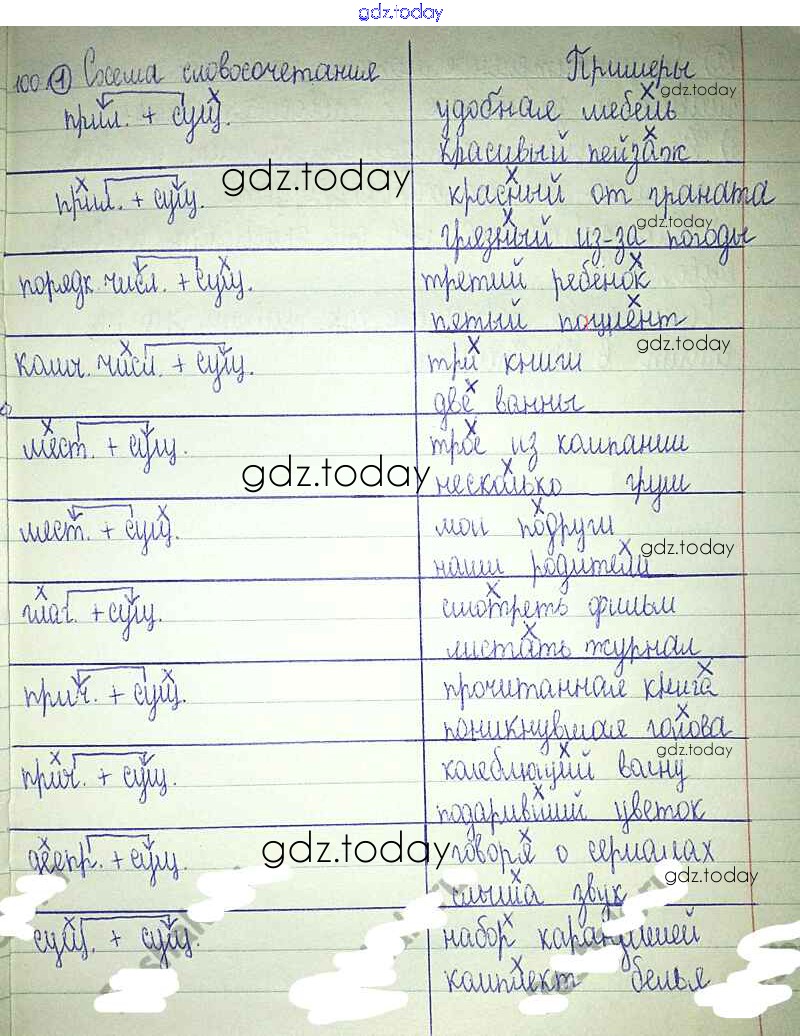 gdz.today
100. 1 Схема словосочетания Примеры
gdz.today
прил. + сущ. удобная мебель
красивый пейзаж
gdz.today
прил. + сущ. красный от граната
gdz.today
грязный из-за погоды
порядк. числ. + сущ. третий ребёнок
пятый пациент
gdz.today
колич. числ. + сущ. три книги
две ванны
мест. + сущ. трое из компании
gdz.today
несколько груш
мест. + сущ. мои подруги
gdz.today
наши родители
глаг. + сущ. смотреть фильм
листать журнал
прич. + сущ. прочитанная книга
поникнувшая голова
gdz.today
прич. + сущ. колеблющий волну
подаривший цветок
деепр. + сущ. говоря о сериалах
gdz.today
gdz.today
слыша звук
сущ. + сущ. набор карандашей
комплект белья